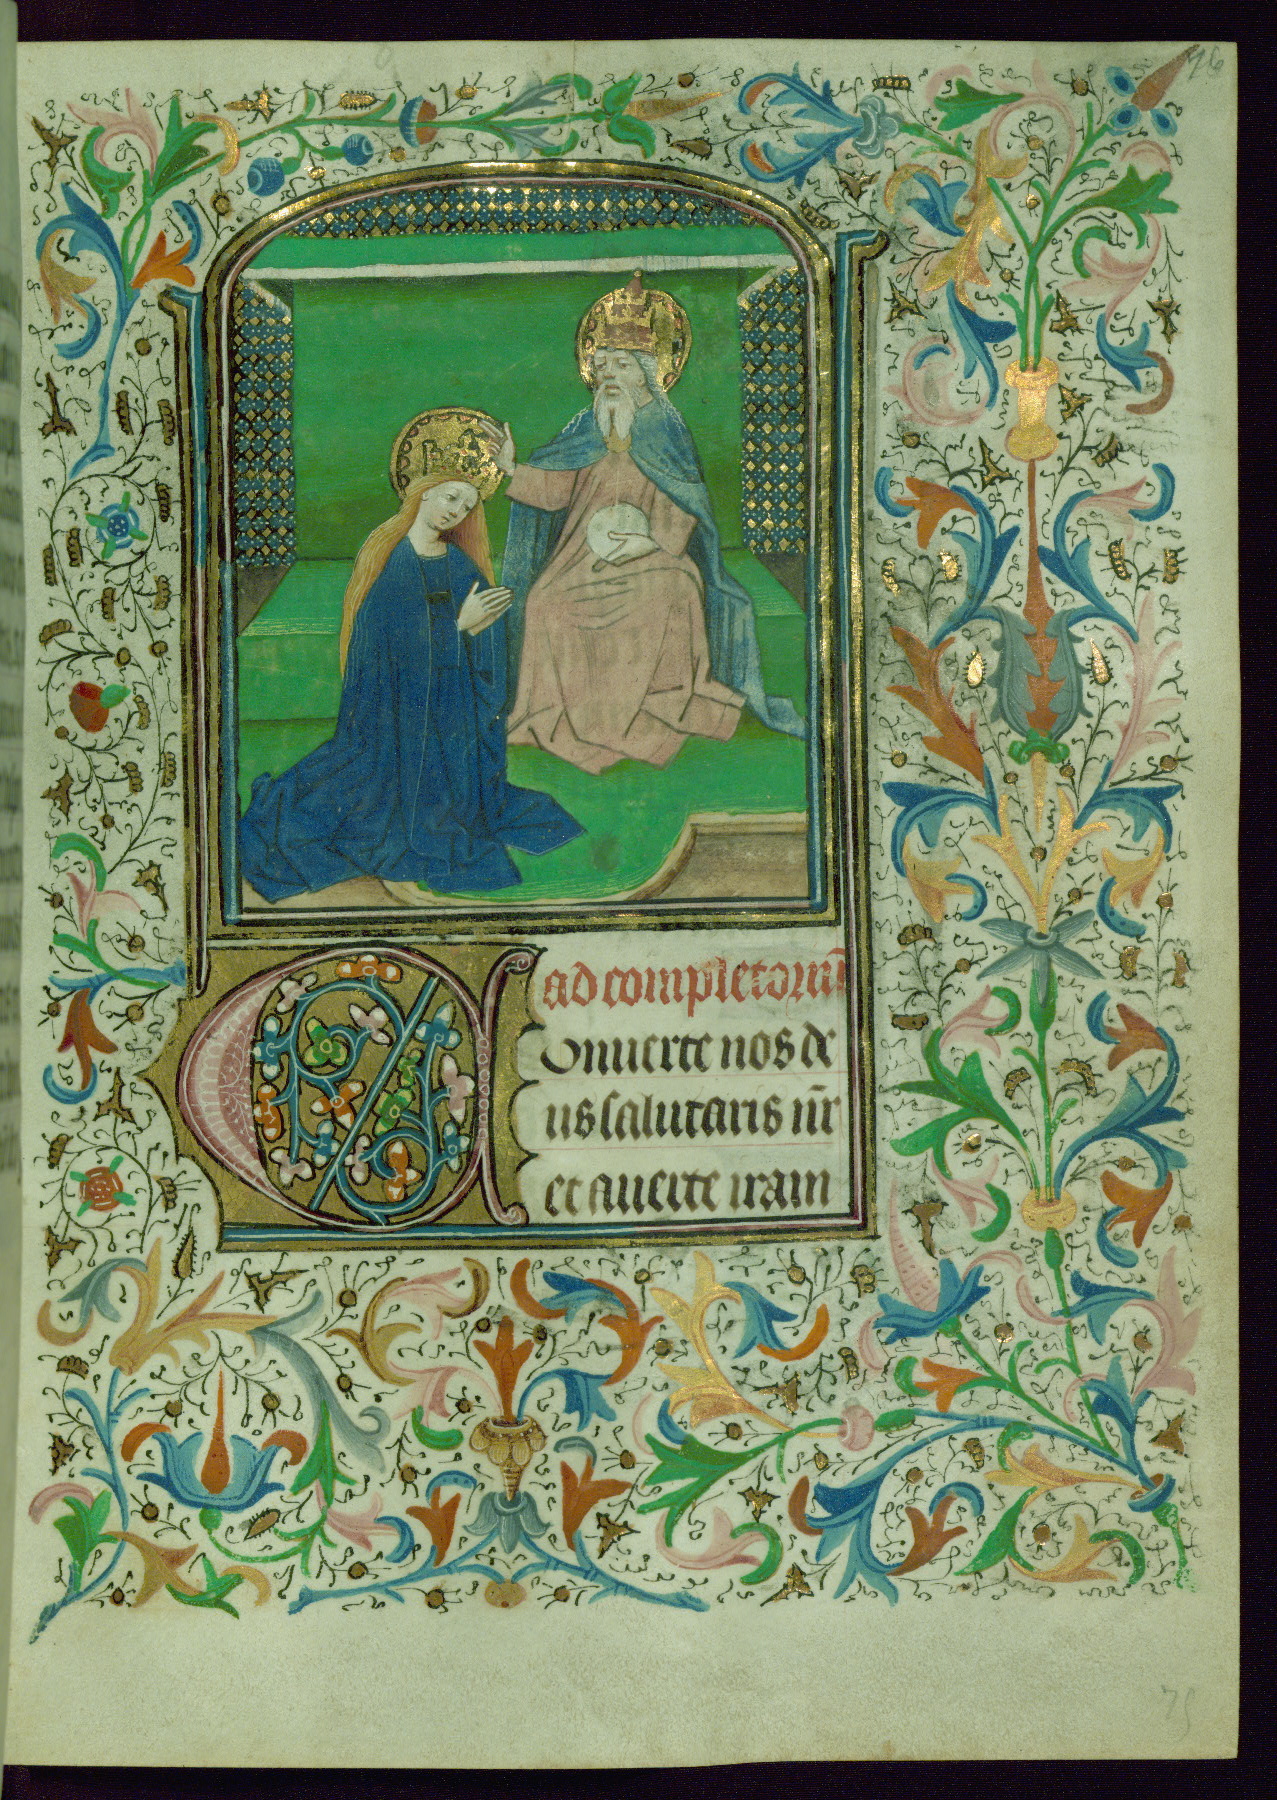 76
ad completoriū
Onuerte nos de
us salutaris nr̄
et auerte iram
75